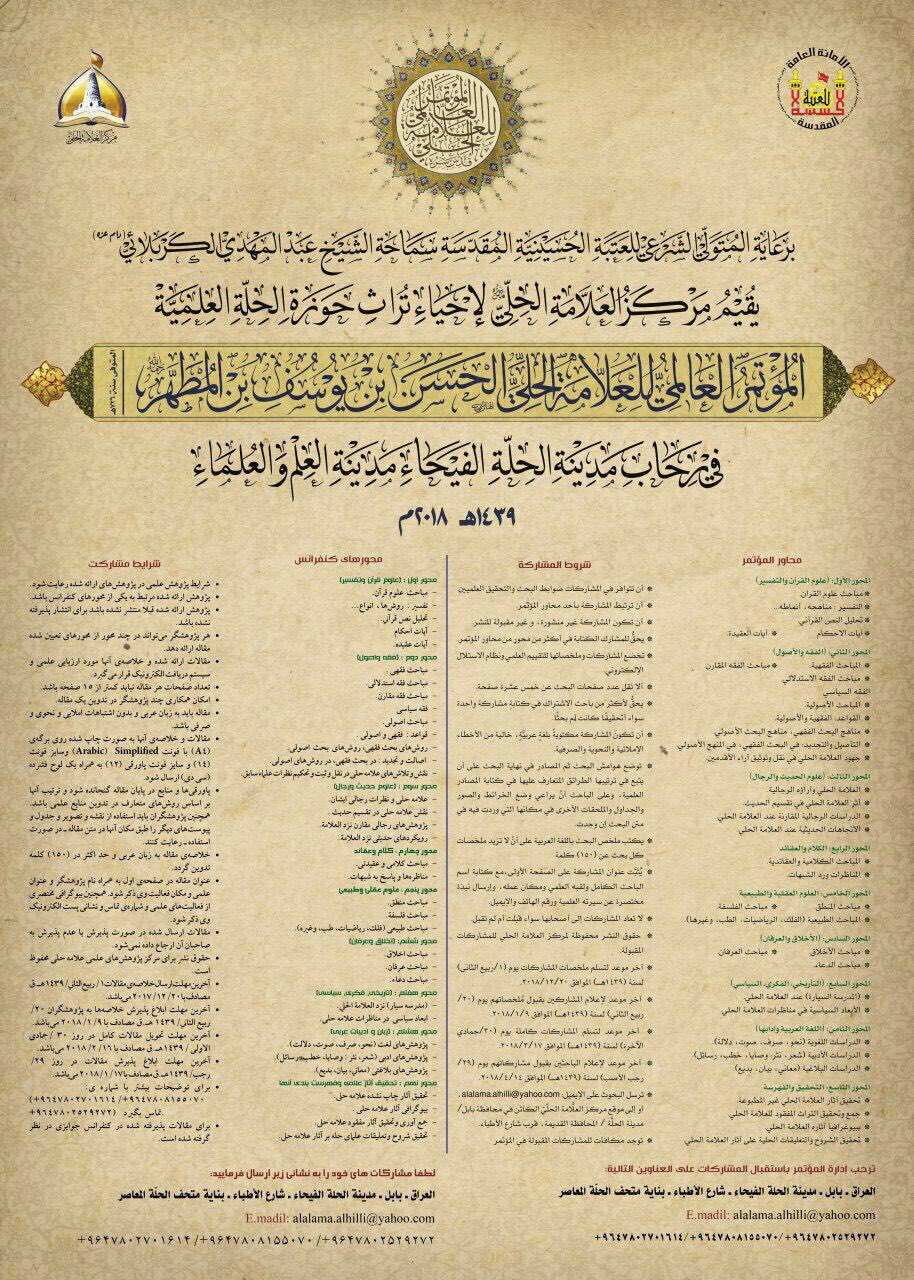 الأمانة العامة
للعتبة
الحسينية
المقدسة
مركز العلامة الحلي
المؤتمر العالمي للعلامة الحلي
قدس سره
برعاية المتولي الشرعي للعتبة الحسينية المقدسة سماحة الشيخ عبد المهدي الكربلائي (دام عزه)
يُقيم مركز العلامة الحلي لإحياء تراث حوزة الحلة العلمية
المؤتمر العالمي للعلامة الحلي الحسن بن يوسف بن المطهر
المتوفى سنة ٧٢٦هـ
في رحاب مدينة الحلة الفيحاء مدينة العلم والعلماء
١٤٣٩هـ ٢٠١٨م
محاور المؤتمر
المحور الأول: (علوم القرآن والتفسير)
* مباحث علوم القرآن.
* التفسير : مناهجه، أنماطه...
* تحليل النص القرآني.
* آيات الأحكام * آيات العقيدة.
المحور الثاني: (الفقه والأصول)
* المباحث الفقهية. * مباحث الفقه المقارن
* مباحث الفقه الاستدلالي
الفقه السياسي
* المباحث الأصولية.
* القواعد: الفقهية والأصولية.
* مناهج البحث الفقهي، مناهج البحث الأصولي
* التأصيل والتجديد: في البحث الفقهي، في المنهج الأصولي
* جهود العلامة الحلي في نقل وتوثيق آراء الأقدمين.
المحور الثالث: (علوم الحديث والرجال)
* العلامة الحلي وآراؤه الرجالية.
* أثر العلامة الحلي في تقسيم الحديث.
* الدراسات الرجالية المقارنة عند العلامة الحلي
* الاتجاهات الحديثية عند العلامة الحلي
المحور الرابع: الكلام والعقائد
* المباحث الكلامية والعقائدية.
* المناظرات ورد الشبهات.
المحور الخامس: (العلوم العقلية والطبيعية
* مباحث المنطق * مباحث الفلسفة
* المباحث الطبيعية (الفلك، الرياضيات، الطب، وغيرها).
المحور السادس: (الأخلاق والعرفان)
* مباحث الأخلاق * مباحث العرفان.
* مباحث الدعاء.
المحور السابع: (التاريخي، الفكري، السياسي)
* (المدرسة السيارة) عند العلامة الحلي.
* الأبعاد السياسية في مناظرات العلامة الحلي.
المحور الثامن: (اللغة العربية وآدابها)
* الدراسات اللغوية (نحو، صرف، صوت، دلالة).
* الدراسات الأدبية (شعر، نثر، وصايا، خطب، رسائل).
* الدراسات البلاغية (معاني، بيان، بديع).
المحور التاسع: التحقيق والفهرسة
* تحقيق آثار العلامة الحلي غير المطبوعة.
* جمع وتحقيق التراث المفقود للعلامة الحلي.
* ببيوغرافيا آثاره العلامة الحلي
* تحقيق الشروح والتعليقات الحلية على آثار العلامة الحلي
شروط المشاركة
* أن تتوافر في المشاركات ضوابط البحث والتحقيق العلميين
* أن ترتبط المشاركة بأحد محاور المؤتمر.
* أن تكون المشاركة غير منشورة، و غير مقبولة للنشر.
* يحقُّ للمشارك الكتابة في أكثر من محور من محاور المؤتمر.
* تخضع المشاركات وملخصاتها للتقييم العلمي ونظام الاستلال
الإلكتروني.
* ألا تقل عدد صفحات البحث عن خمس عشرة صفحة.
* يحقُّ لأكثر من باحث الاشتراك في كتابة مشاركة واحدة
سواء أتحقيقًا كانت أم بحثًا.
* أن تكون المشاركة مكتوبةً بلغة عربيَّة، خالية من الأخطاء
الإملائية والنحوية والصرفية.
* توضع هوامش البحث ثم المصادر في نهاية البحث على أن
يتبع في ترتيبها الطرائق المتعارف عليها في كتابة المصادر
العلمية، وعلى الباحث أنْ يراعي وضع الخرائط والصور
والجداول والملحقات الأخرى في مكانها التي وردت فيه في
متن البحث إن وجدت.
* يكتب ملخص البحث باللغة العربية على أنْ لا تزيد ملخصات
كل بحث عن (١٥٠) كلمة
* يُثبَّت عنوان المشاركة على الصفحة الأولى،مع كتابة اسم
الباحث الكامل ولقبه العلمي ومكان عمله، وإرسال نبذة
مختصرة عن سيرته العلمية ورقم الهاتف والإيميل.
* لا تعاد المشاركات إلى أصحابها سواء قبلت أم لم تقبل.
* حقوق النشر محفوظة لمركز العلامة الحلي للمشاركات
المقبولة.
* آخر موعد لتسلم ملخصات المشاركات يوم (١/ربيع الثاني)
لسنة (١٤٣٩هـ) الموافق ٢٠١٨/١٢/٢٠.
* آخر موعد لإعلام المشاركين بقبول ملخصاتهم يوم (٢٠/
ربيع الثاني) لسنة (١٤٣٩هـ) الموافق ٢٠١٨/١/٩.
* آخر موعد لتسلم المشاركات كاملة يوم (٣٠/جمادي
الآخرة) لسنة (١٤٣٩هـ) الموافق ٢٠١٨/٣/١٧.
* آخر موعد لإعلام الباحثين بقبول مشاركاتهم يوم (٢٩/
رجب الأصب) لسنة (١٤٣٩هـ) الموافق ٢٠١٨/٤/١٤
* ترسل البحوث على الإيميل: alalama.alhilli@yahoo.com،
أو إلى موقع مركز العلامة الحلّيّ الكائن في محافظة بابل/
مدينة الحلّة / المحافظة القديمة، قرب شارع الأطباء.
* توجد مكافآت للمشاركات المقبولة في المؤتمر
محورهای كنفرانس
محور اول : (علوم قرآن وتفسير)
- مباحث علوم قرآن.
- تفسير : روش‌ها ، انواع...
- تحليل نص قرآنى.
- آيات احكام
- آيات عقيده.
محور دوم : (فقه واصول)
- مباحث فقهى.
- مباحث فقه استدلالى.
- مباحث فقه مقارن.
- فقه سياسى
- مباحث اصولى.
- قواعد : فقهى و اصولى.
- روش‌هاى بحث فقهى، روش‌هاى بحث اصولى.
- اصالت و تجديد : در بحث فقهى، در روش‌هاى اصولى.
- نقش و تلاش‌هاى علامه حلى در نقل و ثبت و تحكيم نظرات علماء سابق.
محور سوم : (علوم حديث ورجال)
- علامه حلى و نظرات رجالى ايشان.
- نقش علامه حلى در تقسيم حديث .
- پژوهش‌هاى رجالى مقارن نزد العلامة.
- رويكردهاى حديثى نزد العلامة.
محور چهارم : كلام وعقائد
- مباحث كلامى و عقيدتى.
- مناظره‌ها و پاسخ به شبهات.
محور پنجم : علوم عقلى وطبيعى
- مباحث منطق.
- مباحث فلسفة.
- مباحث طبيعى (فلك، رياضيات، طب، وغيره).
محور ششم : (اخلاق وعرفان)
- مباحث اخلاق.
- مباحث عرفان.
- مباحث دعاء.
محور هفتم : (تاريخى، فكرى، سياسى)
- (مدرسه سيار) نزد العلامة الحلي.
- ابعاد سياسى در مناظرات علامه حلى.
محور هشتم : (زبان و ادبيات عربى)
- پژوهش‌هاى لغت (نحو، صرف، صوت، دلالت).
- پژوهش‌هاى ادبى (شعر، نثر : وصايا، خطيب، رسائل).
- پژوهش‌هاى بلاغى (معانى، بيان، بديع).
محور نهم : تحقيق آثار علامه وفهرست بندى آنها
- تحقيق آثار چاپ نشده علامه حلى.
- بيوگرافى آثار علامه حلى.
- جمع آورى وتحقيق آثار مفقود علامه حلى.
- تحقيق شروح وتعليقات علماى حله بر آثار علامه حلى.
شرايط مشاركت
• شرايط پژوهش علمى در پژوهش‌هاى ارائه شده رعايت شود.
• پژوهش ارائه شده مرتبط به يكى از محورهاى كنفرانس باشد.
• پژوهش ارائه شده قبلا منتشر نشده باشد براى انتشار پذيرفته
نشده باشد.
• هر پژوهشگر مى‌تواند در چند محور از محورهاى تعيين شده
مقاله ارائه دهد.
• مقالات ارائه شده و خلاصه‌ى آنها مورد ارزيابى علمى و
سيستم دريافت الكترونيک قرار مى‌گيرد.
• تعداد صفحات هر مقاله نبايد كمتر از ١٥ صفحه باشد.
• امكان همكارى چند پژوهشگر در تدوين يک مقاله.
• مقاله بايد به زبان عربى و بدون اشتباهات املايى و نحوى و
صرفى باشد.
• مقالات و خلاصه‌ى آنها به صورت چاپ شده روى برگه‌ى
(A٤) با فونت (Arabic) Simplified وسايز فونت
(١٤) و سايز فونت پاورقى (١٢) به همراه يک لوح فشرده
(سى‌دى) ارسال شود.
• پاورقى‌ها و منابع در پايان مقاله گنجانده شود و ترتيب آنها
بر اساس روش‌هاى متعارف در تدوين منابع علمى باشد.
همچنين پژوهشگران بايد استفاده از نقشه و تصوير و جدول و
پيوست‌هاى ديگر را طبق مكان آنها در متن مقاله ـ در صورت
استفاده ـ رعايت كنند.
• خلاصه‌ى مقاله به زبان عربى و حد اكثر در (١٥٠) كلمه
تدوين گردد.
• عنوان مقاله در صفحه‌ى اول به همراه نام پژوهشگر و عنوان
علمى و مكان فعاليت وى ذكر شود. همچنين بيوگرافى مختصرى
از فعاليت‌هاى علمى و شماره‌ى تماس و نشانى پست الكترونيک
وى ذكر شود.
• مقالات ارسال شده در صورت پذيرش يا عدم پذيرش به
صاحبان آن ارجاع داده نمى‌شود.
• حقوق نشر براى مركز پژوهش‌هاى علمى علامه حلى محفوظ
است.
• آخرين مهلت ارسال خلاصه‌ى مقالات ١/ ربيع الثاني/ ١٤٣٩هـ.ق
مصادف با ٢٠١٧/١٢/٢٠ مى‌باشد.
• آخرين مهلت ابلاغ پذيرش خلاصه‌ها به پژوهشگران ٢٠/
ربيع الثاني/ ١٤٣٩هـ.ق مصادف با ٢٠١٨/١/٩ مى‌باشد.
• آخرين مهلت تحويل مقالات كامل در روز ٣٠ / جمادي
الاولى /١٤٣٩هـ.ق مصادف با ٢٠١٨/٢/١٦ مى‌باشد.
• آخرين مهلت ابلاغ پذيرش مقالات در روز ٢٩/
رجب/ ١٤٣٩هـ.ق مصادف با ٢٠١٨/١/١٧ مى‌باشد.
• براى توضيحات بيشتر با شماره ى:
(+٩٦٤٧٨٠٢٧٠١٦١٤ /+٩٦٤٧٨٠٨١٥٥٠٧٠
+٩٦٤٧٨٠٢٥٢٩٢٧٢) تماس بگيرد.
• براى مقالات پذيرفته شده در كنفرانس جوايزى در نظر
گرفته شده است.
ترحب إدارة المؤتمر باستقبال المشاركات على العناوين التالية:
العراق ـ بابل ـ مدينة الحلة الفيحاء ـ شارع الأطباء ـ بناية متحف الحلّة المعاصر
E.madil: alalama.alhilli@yahoo.com
+٩٦٤٧٨٠٢٧٠١٦١٤/+٩٦٤٧٨٠٨١٥٥٠٧٠/+٩٦٤٧٨٠٢٥٢٩٢٧٢
لطفا مشاركات هاى خود را به نشانى زير ارسال فرماييد:
العراق ـ بابل ـ مدينة الحلة الفيحاء ـ شارع الأطباء ـ بناية متحف الحلّة المعاصر
E.madil: alalama.alhilli@yahoo.com
+٩٦٤٧٨٠٢٧٠١٦١٤/+٩٦٤٧٨٠٨١٥٥٠٧٠/+٩٦٤٧٨٠٢٥٢٩٢٧٢